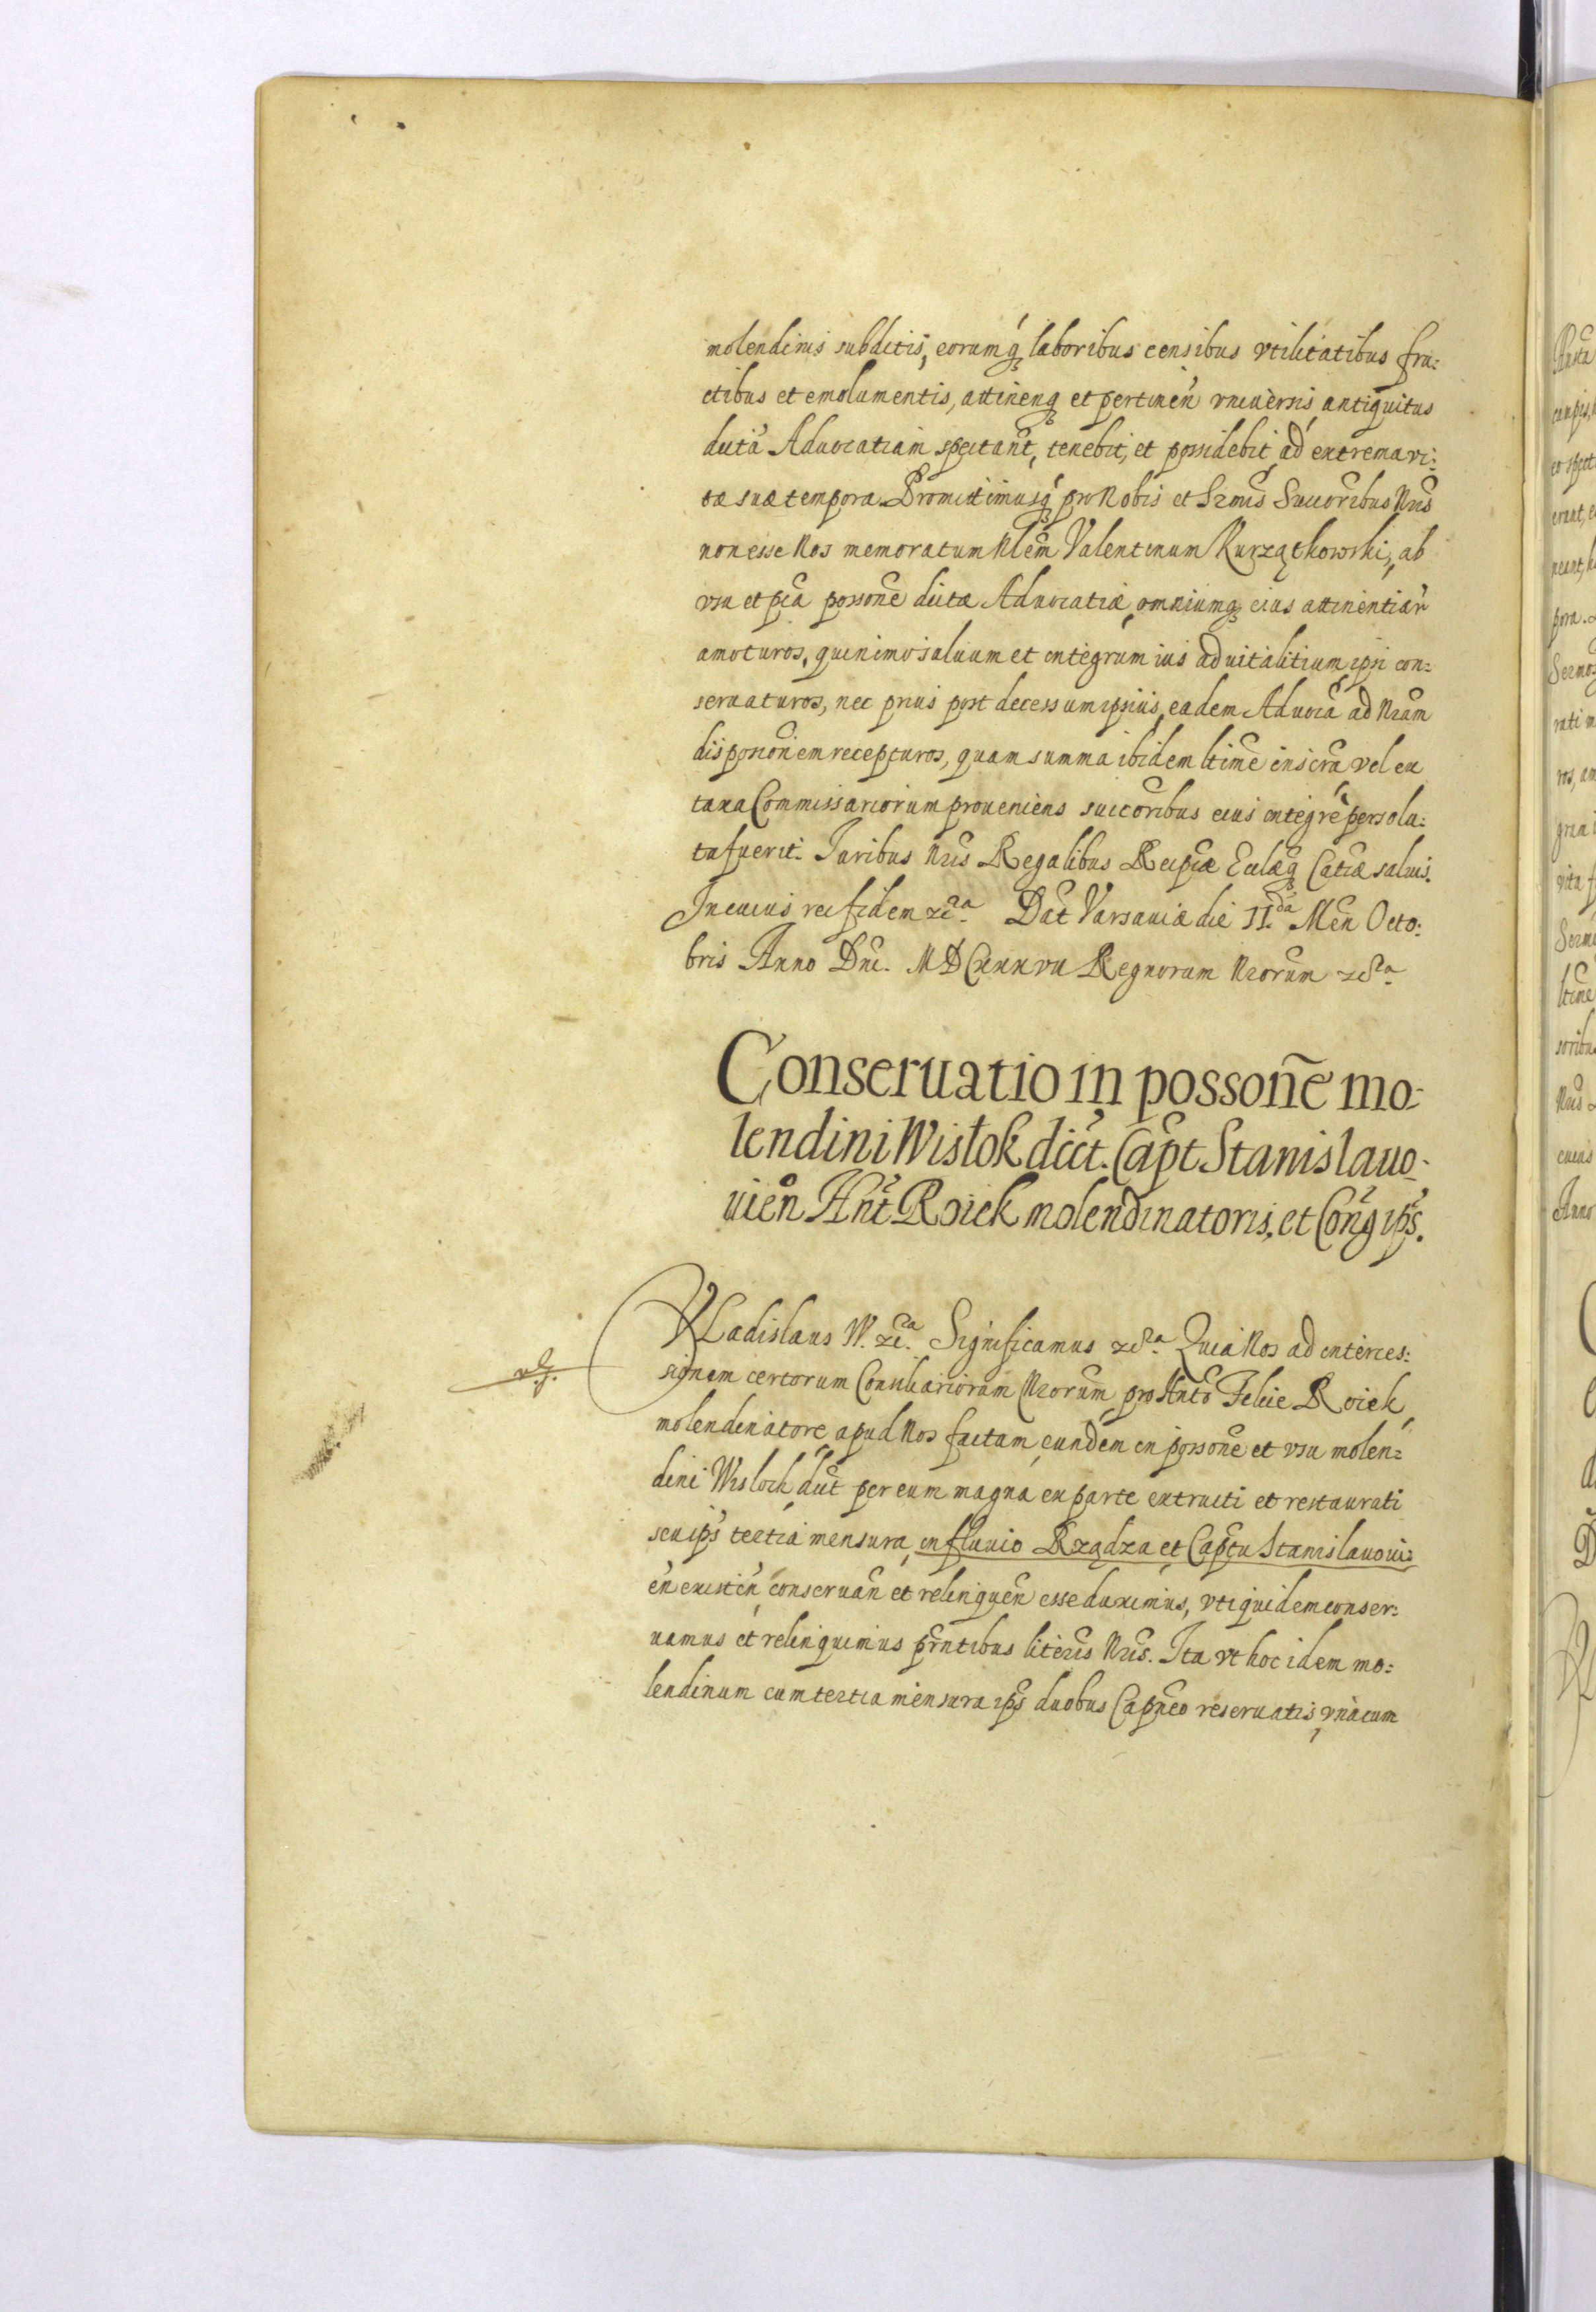 molendinis subditis, eorumq laboribus censibus vtilitatibus fru:
ctibus et emolumentis, attinenq et pertinen̄ vniuersis antiquitus
dictā Aduocatiam spectan̄t, tenebit, et possidebit ad extrema vi:
tæ suæ tempora. Promittimusq pro Nobis et Srmis Succoribus Nris
non esse Nos memoratum Nlem Valentinum Kurządkowski, ab
vsu et pca possone dictæ Aduocatiæ omniumq eius attinentiar
amoturos, quinimo saluum et integrum ius aduitalitium ipsi con:
seruaturos, nec prius post decessum ipsius, eadem Aduocā ad Nram
disposionem recepturos, quam summa ibidem ltime inscra vel ex
taxa Commissariorum proueniens succoribus eius integrè persolu:
ta fuerit. Iuribus Nris Regalibus Reipcæ Ecclæq Catcæ saluis.
In cuius rei fidem &c̄a. Dat Varsauiæ die II.da Men Octo:
bris Anno Dni. MDCxxxvii Regnorum Nrorum &c̄a
Conseruatio in possone mo:
lendini Wisłok dict. Capt Stanislauo:
uien Hnt Roiek molendinatoris, et Cong ips.
VLadislaus IV. &c̄a. Significamus &c̄a. Quia Nos ad interces:
sionem certorum Consiliariorum Nrorum pro Hnto Felice Roiek
molendinatore apud Nos factam, eundem in possone et vsu molen:
dini Wislock dict per eum magna ex parte extructi et restaurati
seu ips tertia mensura, in fluuio Rządza et Captu Stanislauoui:
en existen, conseruan et relinquen esse duximus, vti quidem conser:
uamus et relinquimus prntibus literis Nris. Ita vt hoc idem mo:
lendinum cum tertia mensura ips duobus Capneo reseruatis, vnàcum